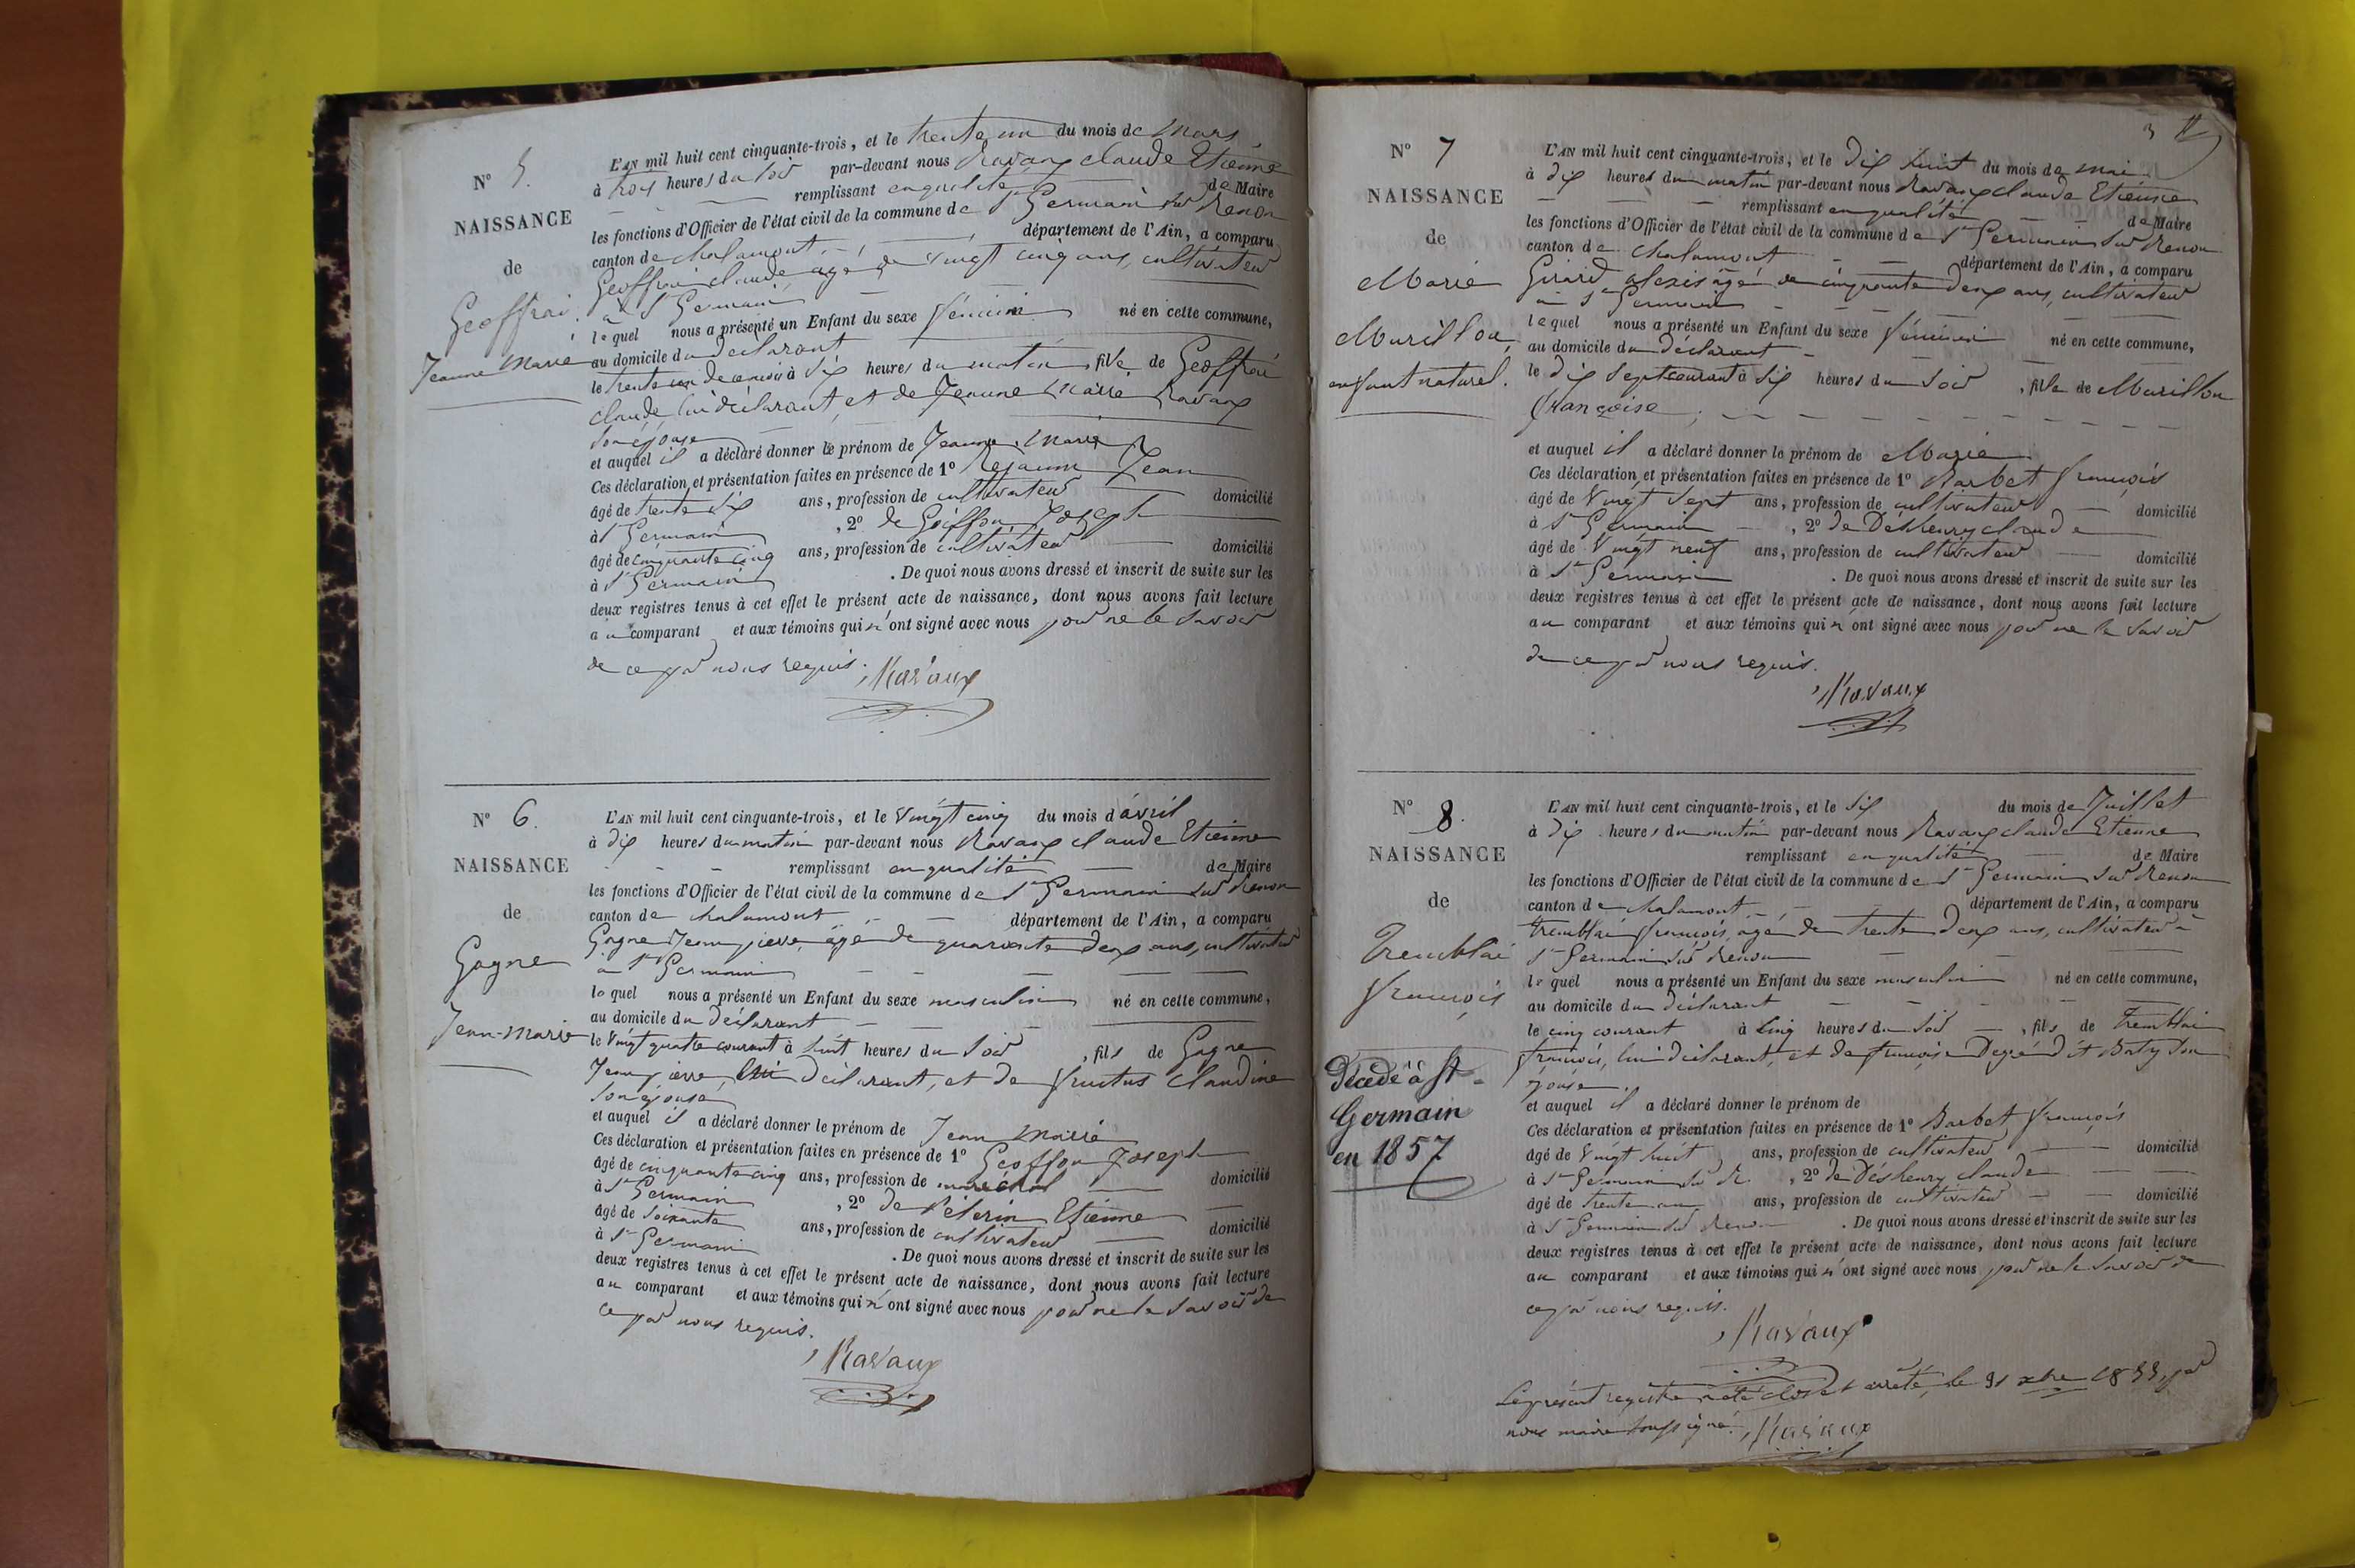 N° 5.
NAISSANCE
de
Geoffrai
Jeanne Marie
L'AN mil huit cent cinquante-trois, et le trente un du mois de Mars
à trois heures du soir par-devant nous Ravaux claude Etienne
remplissant en qualité de Maire
les fonctions d'Officier de l'état civil de la commune de St Germain sur Renon
canton de chalamont département de l'Ain, a comparu
Geoffrai claude, agé de vingt cinq ans, cultivateur
à St Germain
lequel nous a présenté un Enfant du sexe féminin né en cette commune,
au domicile du déclarant
le trente un de ce mois à six heures du matin, fille de Geoffrai
claude lui déclarant, et de Jeanne Marie Ravaux
son épouse
et auquel il a déclaré donner le prénom de Jeanne Marie
Ces déclaration et présentation faites en présence de 1° Rejaunu Jean
âgé de trente six ans, profession de cultivateur domicilié
à St Germain, 2° de Goiffon Joseph
âgé de cinquante cinq ans, profession de cultivateur domicilié
à St Germain. De quoi nous avons dressé et inscrit de suite sur les
deux registres tenus à cet effet le présent acte de naissance, dont nous avons fait lecture
au comparant et aux témoins qui n'ont signé avec nous pour ne le savoir
de ce par nous requis. Ravaux
N° 6.
NAISSANCE
de
Gagne
Jean-Marie
L'AN mil huit cent cinquante-trois, et le vingt cinq du mois d'avril
à dix heures du matin par-devant nous Ravaux claude Etienne
remplissant en qualité de Maire
les fonctions d'Officier de l'état civil de la commune de St Germain sur Renon
canton de chalamont département de l'Ain, a comparu
Gagne Jean pierre, âgé de quarante deux ans, cultivateur
à St Germain
lequel nous a présenté un Enfant du sexe masculin né en cette commune,
au domicile du déclarant
le vingt quatre courant à huit heures du soir, fils de Gagne
Jean pierre, lui déclarant, et de fructus claudine
son épouse
et auquel il a déclaré donner le prénom de Jean Marie
Ces déclaration et présentation faites en présence de 1° Geoffon Joseph
âgé de cinquante cinq ans, profession de maréchal domicilié
à St Germain, 2° de Pélerin Etienne
âgé de soixante ans, profession de cultivateur domicilié
à St Germain. De quoi nous avons dressé et inscrit de suite sur les
deux registres tenus à cet effet le présent acte de naissance, dont nous avons fait lecture
au comparant et aux témoins qui n'ont signé avec nous pour ne le savoir de
ce par nous requis.
Ravaux
3
N° 7
NAISSANCE
de
Marie
Murillon,
enfant naturel.
L'AN mil huit cent cinquante-trois, et le dix huit du mois de mai
à dix heures du matin par-devant nous Ravaux claude Etienne
remplissant en qualité de Maire
les fonctions d'Officier de l'état civil de la commune de St Germain sur Renon
canton de chalamont département de l'Ain, a comparu
Girard alexis âgé de cinquante deux ans, cultivateur
à St Germain
lequel nous a présenté un Enfant du sexe féminin né en cette commune,
au domicile du déclarant
le dix sept courant à six heures du soir, fille de Murillon
françoise,
et auquel il a déclaré donner le prénom de Marie
Ces déclaration et présentation faites en présence de 1° Barbet françois
âgé de vingt sept ans, profession de cultivateur domicilié
à St Germain, 2° de Déshenry claude
âgé de vingt neuf ans, profession de cultivateur domicilié
à St Germain. De quoi nous avons dressé et inscrit de suite sur les
deux registres tenus à cet effet le présent acte de naissance, dont nous avons fait lecture
au comparant et aux témoins qui n'ont signé avec nous pour ne le savoir
de ce par nous requis.
Ravaux
N° 8.
NAISSANCE
de
Tremblai
françois
Décédé à St-
Germain
en 1857
L'AN mil huit cent cinquante-trois, et le six du mois de Juillet
à dix heures du matin par-devant nous Ravaux claude Etienne
remplissant en qualité de Maire
les fonctions d'Officier de l'état civil de la commune de St Germain sur Renon
canton de chalamont département de l'Ain, a comparu
tremblai françois, agé de trente deux ans, cultivateur à
St Germain sur Renon
lequel nous a présenté un Enfant du sexe masculin né en cette commune,
au domicile du déclarant
le cinq courant à cinq heures du soir, fils de tremblai
françois, lui déclarant, et de françoise Degré dit Baty son
épouse.
et auquel il a déclaré donner le prénom de
Ces déclaration et présentation faites en présence de 1° Barbet françois
âgé de vingt huit ans, profession de cultivateur domicilié
à St Germain sur R., 2° de Déshenry claude
âgé de trente ans, profession de cultivateur domicilié
à St Germain sur Renon. De quoi nous avons dressé et inscrit de suite sur les
deux registres tenus à cet effet le présent acte de naissance, dont nous avons fait lecture
au comparant et aux témoins qui n'ont signé avec nous pour ne le savoir de
ce par nous requis.
Ravaux
Le présent registre a été clos et arrêté, le 31 xbre 1853, par
nous maire soussigné. Ravaux